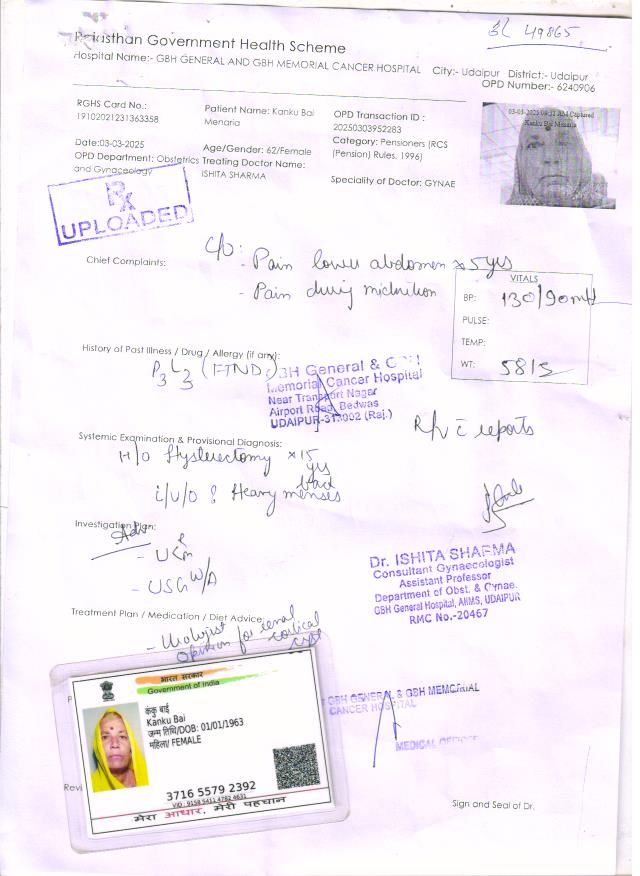 ჳL 49865
Rajasthan Government Health Scheme
Hospital Name:- GBH GENERAL AND GBH MEMORIAL CANCER HOSPITAL City:- Udaipur District:- Udaipur
OPD Number:- 6240906
RGHS Card No.: 19102021231363358
Patient Name: Kanku Bai Menaria
OPD Transaction ID : 20250303952283
Date:03-03-2025
Age/Gender: 62/Female
Category: Pensioners (RCS (Pension) Rules, 1996)
OPD Department: Obstetrics and Gynaceology
Treating Doctor Name: ISHITA SHARMA
Speciality of Doctor: GYNAE
03-03-2025 Captured
Kanku Bai Menaria
Rx
UPLOADED
Chief Complaints:
C/o: - Pain lower abdomen x 5 yrs
- Pain during micturition
VITALS
BP: 130/90
PULSE:
TEMP:
WT: 58.5
History of Past Illness / Drug / Allergy (if any):
P3L3 (FTND)
GBH General & GBH
Memorial Cancer Hospital
Near Transport Nagar
Airport Road, Bedwas
UDAIPUR-313002 (Raj.)
R/v c reports
Systemic Examination & Provisional Diagnosis:
H/o Hysterectomy x 15 yrs back
i/v/o Heavy menses
Investigation Plan:
Adv
- USG W/A
Dr. ISHITA SHARMA
Consultant Gynaecologist
Assistant Professor
Department of Obst. & Gynae.
GBH General Hospital, AIIMS, UDAIPUR
RMC No.-20467
Treatment Plan / Medication / Diet Advice:
- Urologist opinion for renal cortical cyst
GBH GENERAL & GBH MEMORIAL
CANCER HOSPITAL
MEDICAL OFFICER
भारत सरकार
Government of India
कंकु बाई
Kanku Bai
जन्म तिथि/DOB: 01/01/1963
महिला/ FEMALE
3716 5579 2392
VID : 9158 5411 4762 4631
मेरा आधार, मेरी पहचान
Revi
Sign and Seal of Dr.